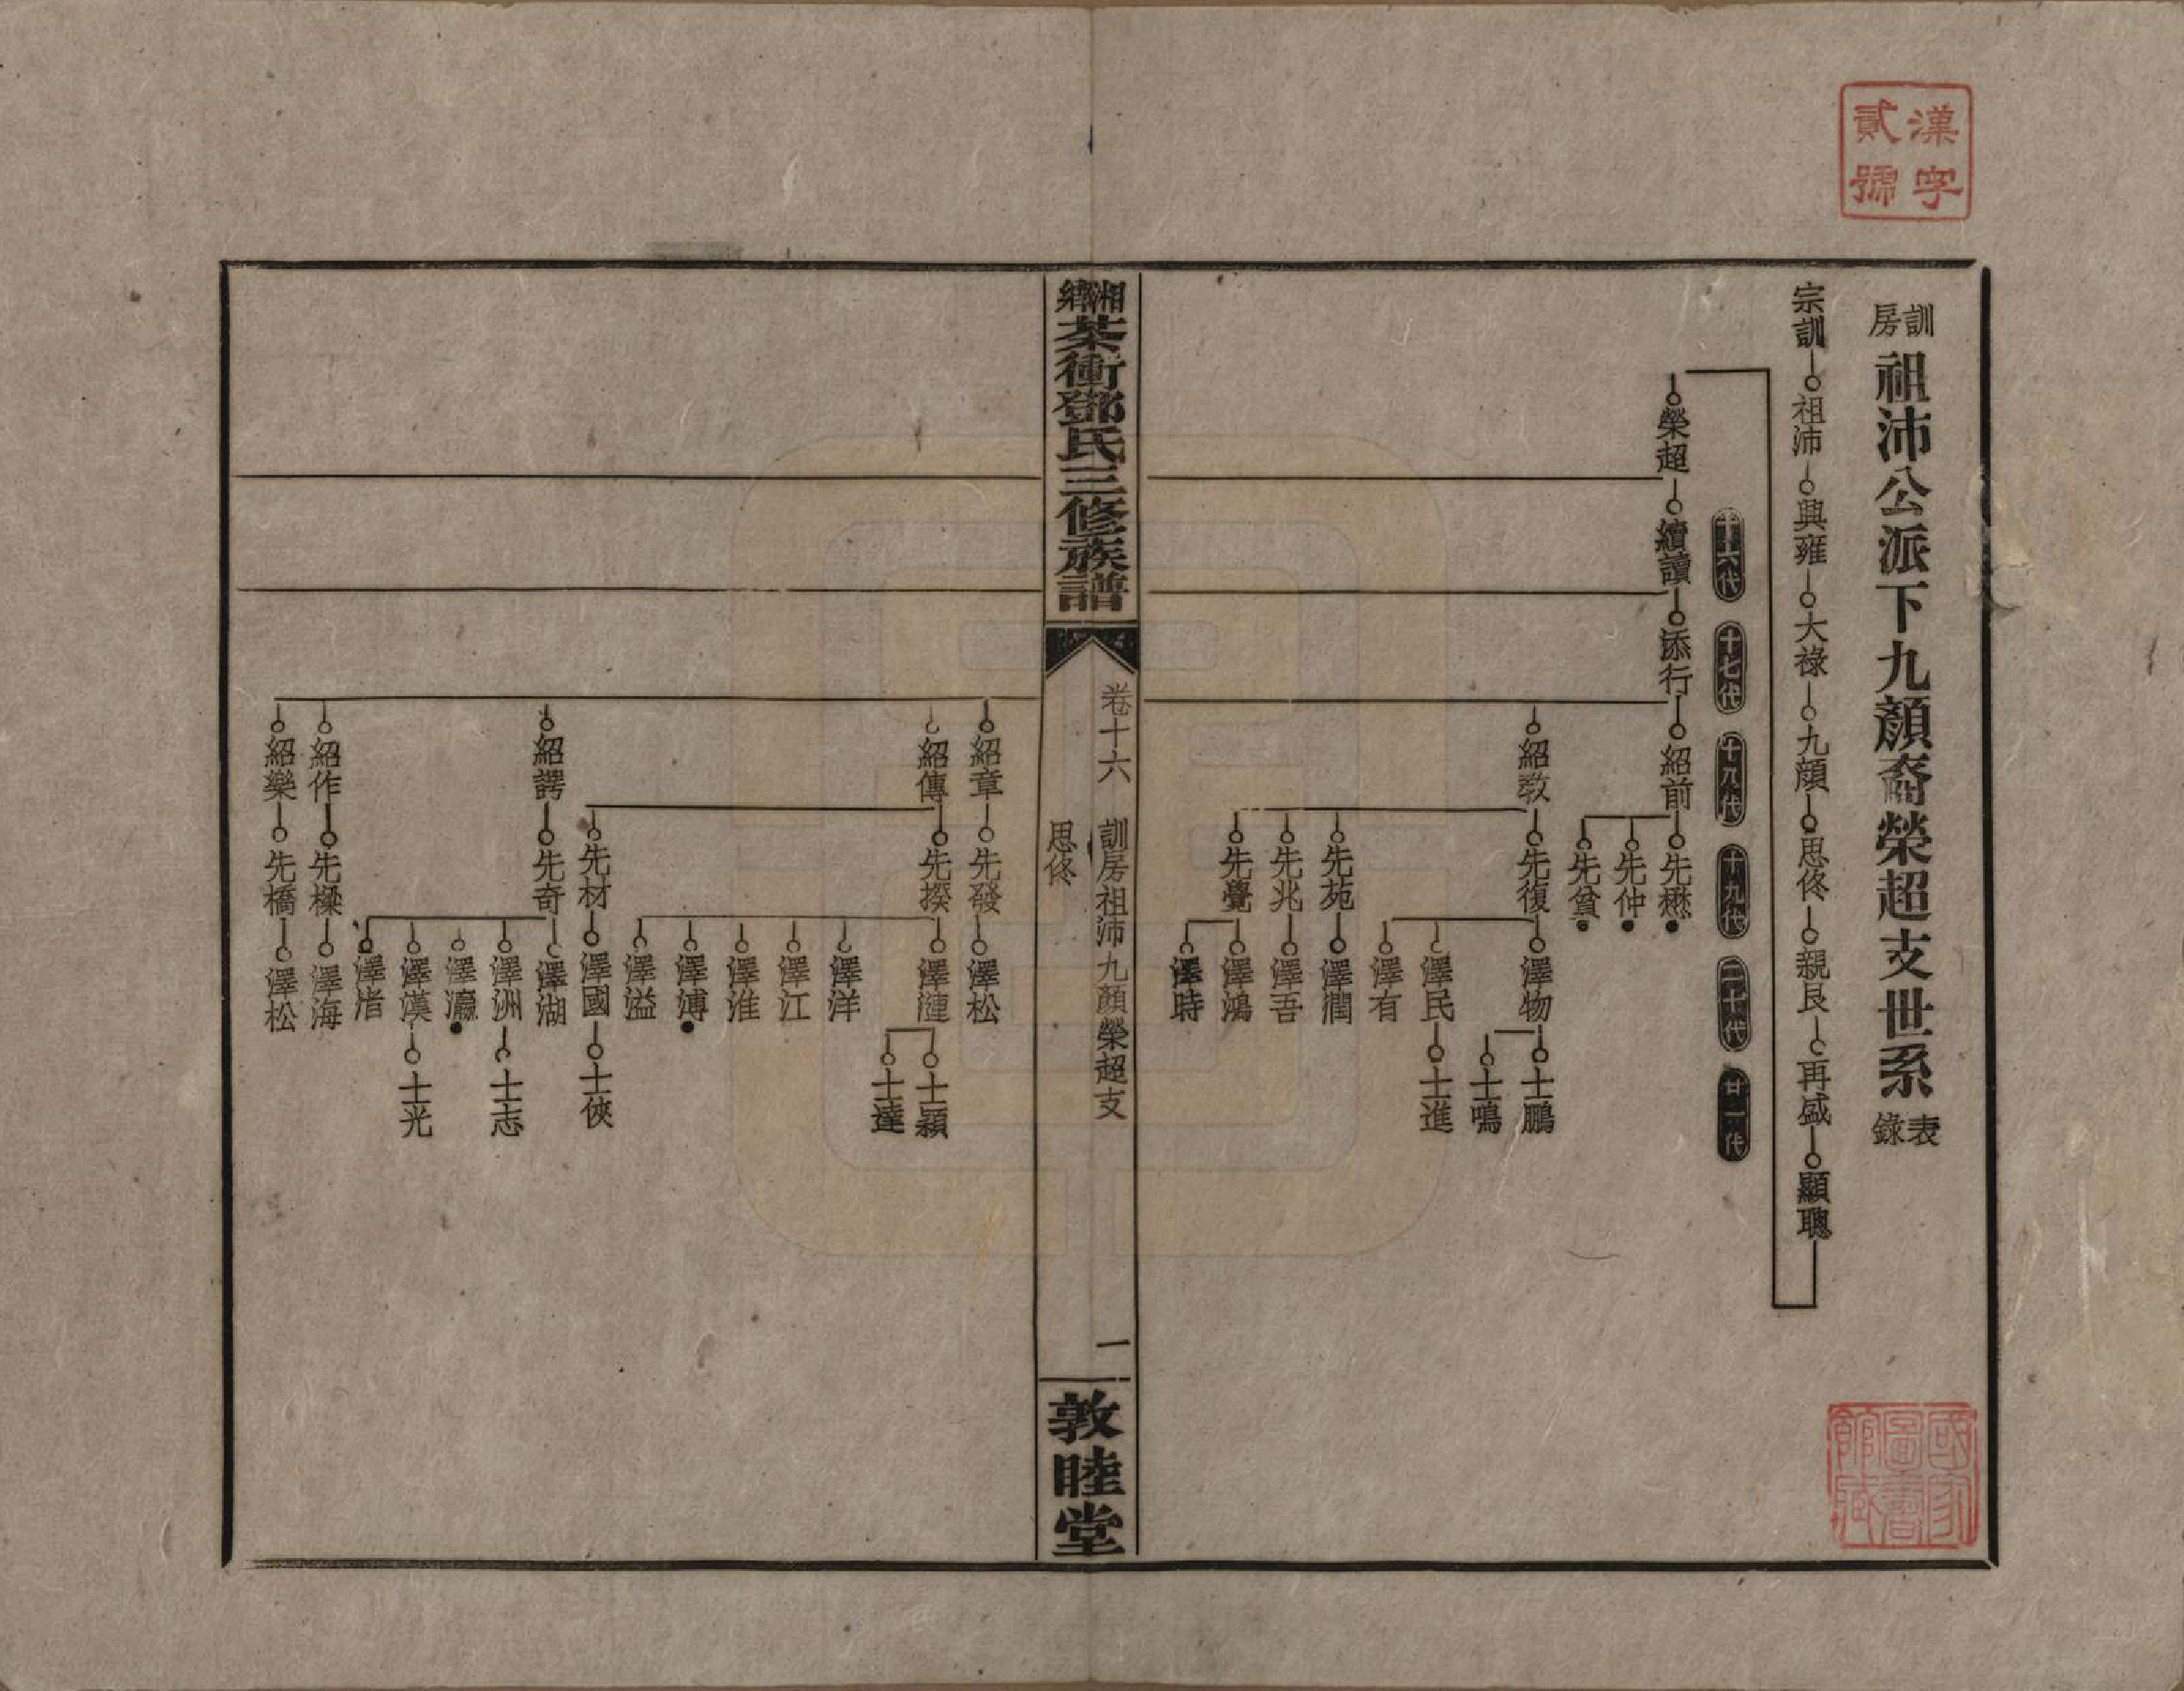 漢字貳號
訓房祖沛公派下九顏裔榮超支世系表錄
宗訓 祖沛 興雍 大祿 九顏 思佟 親艮 再盛 顯聰
十六代 十七代 十八代 十九代 二十代 廿一代
榮超 續讀 添行 紹前 先懋
先仲
先貧
紹教 先復 澤物 士鵬
士鳴
澤民 士進
澤有
先苑 澤潤
先兆 澤吾
先覺 澤鴻
澤時
湘鄉茶衝鄧氏三修族譜
卷十六 訓房祖沛九顏榮超支
思佟
一
敦睦堂
紹章 先發 澤松
紹傳 先揆 澤漣 士穎
士達
澤洋
澤江
澤淮
澤溥
澤溢
先材 澤國 士俠
紹諤 先奇 澤湖
澤洲 士志
澤瀛
澤漢 士光
澤渚
紹作 先樑 澤海
紹樂 先橋 澤松
國家圖書館藏